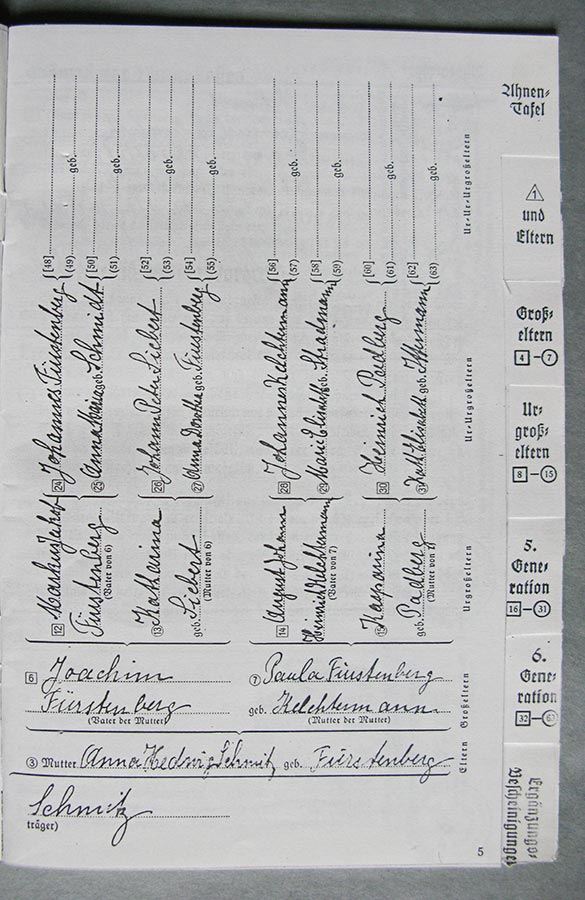 Ahnen-
Tafel
1
und
Eltern
Groß-
eltern
4–7
Ur-
groß-
eltern
8–15
5.
Gene-
ration
16–31
6.
Gene-
ration
32–63
Ergänzungs-
Bescheinigungen
[48]
(49) geb.
[50]
(51) geb.
[52]
(53) geb.
[54]
(55) geb.
[56]
(57) geb.
[58]
(59) geb.
[60]
(61) geb.
[62]
(63) geb.
Ur-Ur-Urgroßeltern
24 Johannes Fürstenberg
25 Anna Maria geb. Schmidt
26 Johann Peter Siebert
27 Anna Dorothea geb. Fürstenberg
28 Johannes Kelchtermann
29 geb. Stratmann
30 Heinrich Padberg
31 Elisabeth geb.
Ur-Urgroßeltern
12 Martin Jakob
Fürstenberg
(Vater von 6)
13 Katharina
geb. Siebert
(Mutter von 6)
14 August Johann
Heinrich Kelchtermann
(Vater von 7)
15 Kasparina
geb. Padberg
(Mutter von 7)
Urgroßeltern
6 Joachim
Fürstenberg
(Vater der Mutter)
7 Paula Fürstenberg
geb. Kelchtermann
(Mutter der Mutter)
Großeltern
3 Mutter Anna Hedwig Schmitz geb. Fürstenberg
Eltern
Schmitz
träger)
5